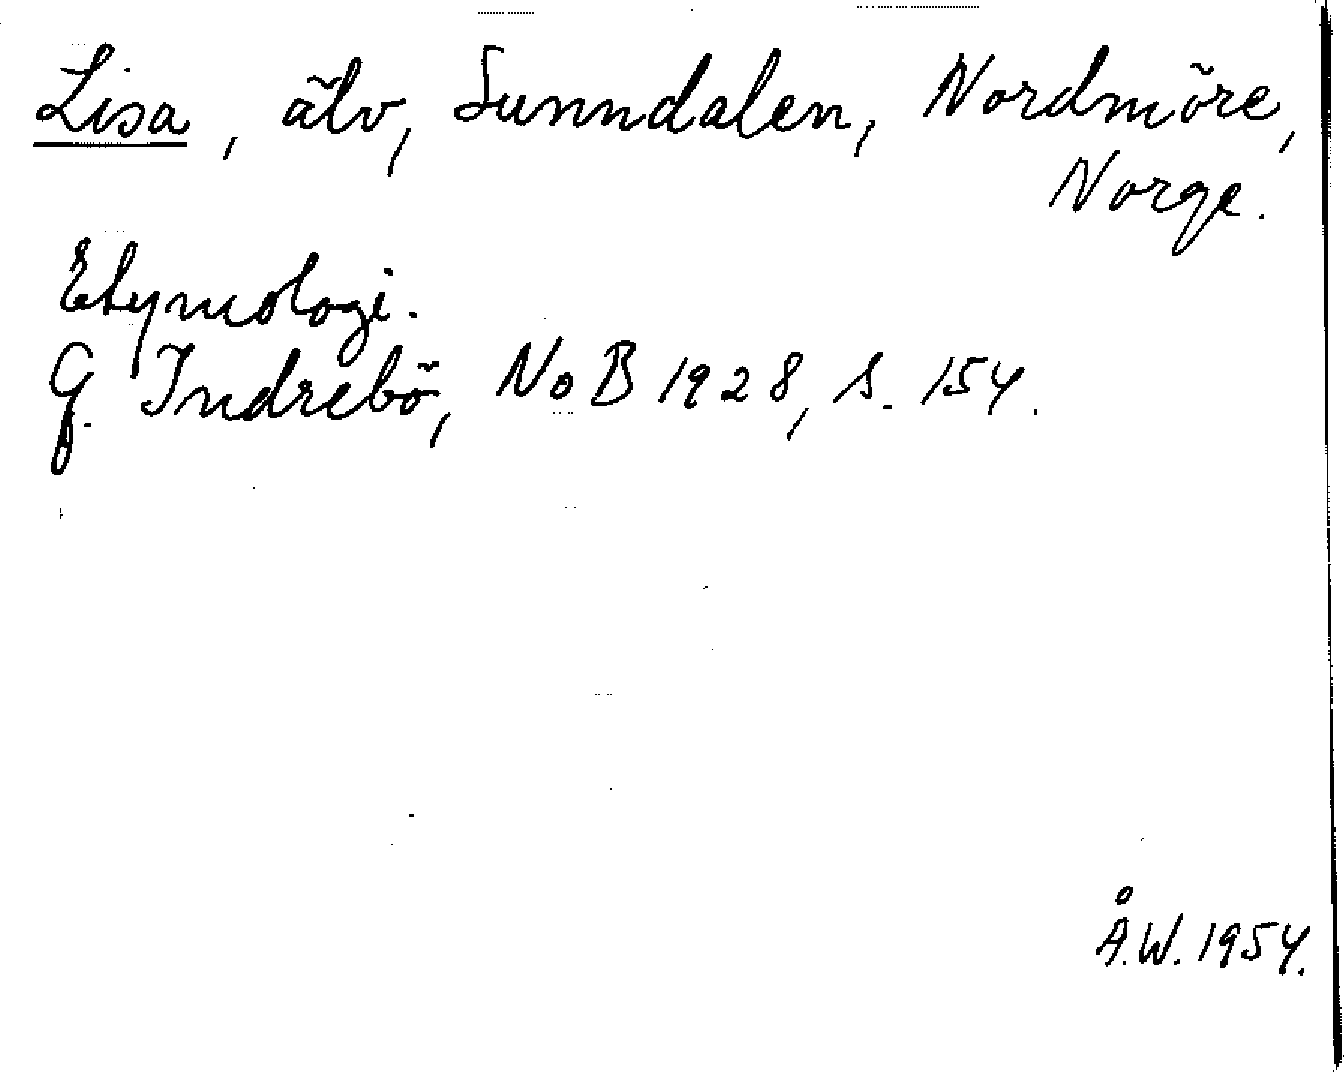 Lisa, älv, Sunndalen, Nordmöre,
Norge.
Etymologi.
G. Indrebö, NoB 1928, s. 154.
Å.W. 1954.